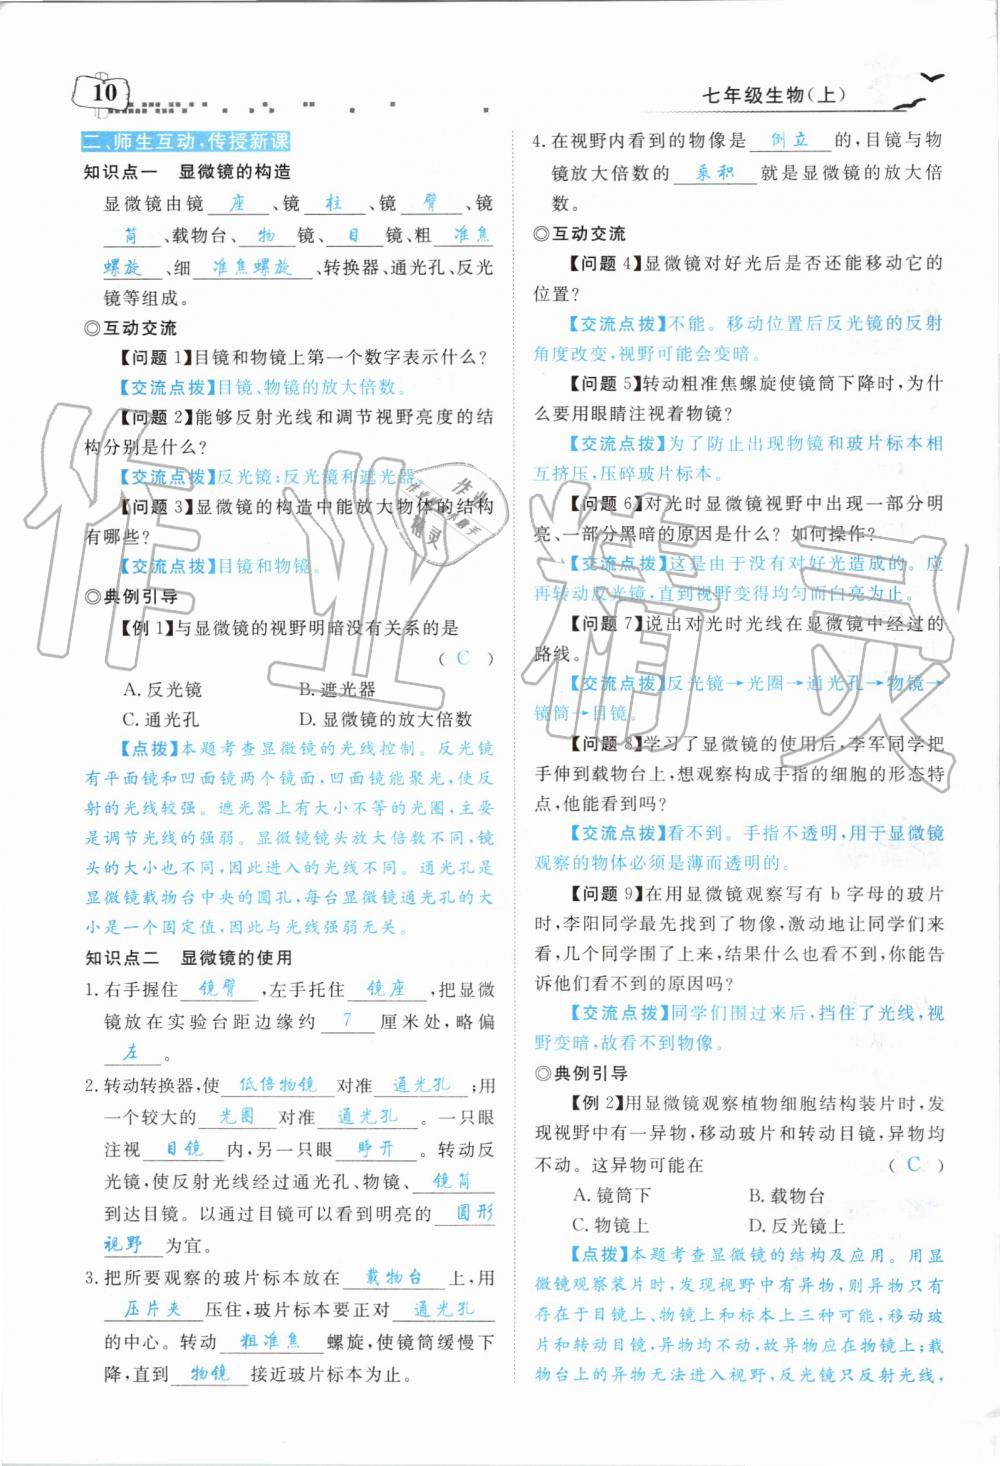 10
七年级生物(上)
二、师生互动,传授新课
知识点一 显微镜的构造
显微镜由镜 座 、镜 柱 、镜 臂 、镜
筒 、载物台、 物 镜、 目 镜、粗 准焦
螺旋 、细 准焦螺旋 、转换器、通光孔、反光
镜等组成。
◎互动交流
【问题 1】目镜和物镜上第一个数字表示什么?
【交流点拨】目镜、物镜的放大倍数。
【问题 2】能够反射光线和调节视野亮度的结
构分别是什么?
【交流点拨】反光镜;反光镜和遮光器。
【问题 3】显微镜的构造中能放大物体的结构
有哪些?
【交流点拨】目镜和物镜。
◎典例引导
【例 1】与显微镜的视野明暗没有关系的是
( C )
A. 反光镜 B. 遮光器
C. 通光孔 D. 显微镜的放大倍数
【点拨】本题考查显微镜的光线控制。反光镜
有平面镜和凹面镜两个镜面,凹面镜能聚光,使反
射的光线较强。遮光器上有大小不等的光圈,主要
是调节光线的强弱。显微镜镜头放大倍数不同,镜
头的大小也不同,因此进入的光线不同。通光孔是
显微镜载物台中央的圆孔,每台显微镜的通光孔大
小是一个固定值,因此与光线强弱无关。
知识点二 显微镜的使用
1. 右手握住 镜臂 ,左手托住 镜座 ,把显微
镜放在实验台距边缘约 7 厘米处,略偏
左 。
2. 转动转换器,使 低倍物镜 对准 通光孔 ;用
一个较大的 光圈 对准 通光孔 。一只眼
注视 目镜 内,另一只眼 睁开 。转动反
光镜,使反射光线经过通光孔、物镜、 镜筒
到达目镜。以通过目镜可以看到明亮的 圆形
视野 为宜。
3. 把所要观察的玻片标本放在 载物台 上,用
压片夹 压住,玻片标本要正对 通光孔
的中心。转动 粗准焦 螺旋,使镜筒缓慢下
降,直到 物镜 接近玻片标本为止。
4. 在视野内看到的物像是 倒立 的,目镜与物
镜放大倍数的 乘积 就是显微镜的放大倍
数。
◎互动交流
【问题 4】显微镜对好光后是否还能移动它的
位置?
【交流点拨】不能。移动位置后反光镜的反射
角度改变,视野可能会变暗。
【问题 5】转动粗准焦螺旋使镜筒下降时,为什
么要用眼睛注视着物镜?
【交流点拨】为了防止出现物镜和玻片标本相
互挤压,压碎玻片标本。
【问题 6】对光时显微镜视野中出现一部分明
亮、一部分黑暗的原因是什么? 如何操作?
【交流点拨】这是由于没有对好光造成的。应
再转动反光镜,直到视野变得均匀而白亮为止。
【问题 7】说出对光时光线在显微镜中经过的
路线。
【交流点拨】反光镜→光圈→通光孔→物镜→
镜筒→目镜。
【问题 8】学习了显微镜的使用后,李军同学把
手伸到载物台上,想观察构成手指的细胞的形态特
点,他能看到吗?
【交流点拨】看不到。手指不透明,用于显微镜
观察的物体必须是薄而透明的。
【问题 9】在用显微镜观察写有 b 字母的玻片
时,李阳同学最先找到了物像,激动地让同学们来
看,几个同学围了上来,结果什么也看不到。你能告
诉他们看不到的原因吗?
【交流点拨】同学们围过来后,挡住了光线,视
野变暗,故看不到物像。
◎典例引导
【例 2】用显微镜观察植物细胞结构装片时,发
现视野中有一异物,移动玻片和转动目镜,异物均
不动。这异物可能在 ( C )
A. 镜筒下 B. 载物台
C. 物镜上 D. 反光镜上
【点拨】本题考查显微镜的结构及应用。用显
微镜观察装片时,发现视野中有异物,则异物只有
存在于目镜上、物镜上和标本上三种可能,移动玻
片和转动目镜,异物均不动,故异物应在物镜上;载
物台上的异物无法进入视野,反光镜只反射光线,
作业精灵